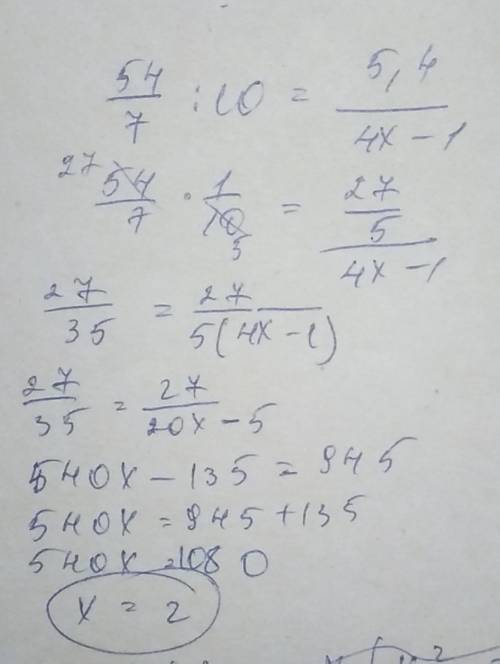 54/7 : 10 = 5,4/(4x - 1)
27 54/7 · 1/10 5 = (27/5)/(4x - 1)
27/35 = 27/(5(4x - 1))
27/35 = 27/(20x - 5)
540x - 135 = 945
540x = 945 + 135
540x = 1080
x = 2